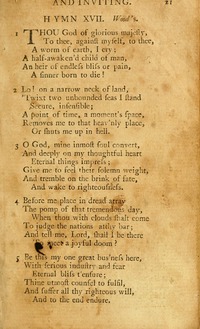 AND INVITING. 21
HYMN XVII. Wood's.
1 THOU God of glorious majesty,
To thee, against myself, to thee,
A worm of earth, I cry;
A half-awaken'd child of man,
An heir of endless bliss or pain,
A sinner born to die!
2 Lo! on a narrow neck of land,
'Twixt two unbounded seas I stand
Secure, insensible;
A point of time, a moment's space,
Removes me to that heav'nly place,
Or shuts me up in hell.
3 O God, mine inmost soul convert,
And deeply on my thoughtful heart
Eternal things impress;
Give me to feel their solemn weight,
And tremble on the brink of fate,
And wake to righteousness.
4 Before me place in dread array
The pomp of that tremendous day,
When thou with clouds shalt come
To judge the nations at thy bar;
And tell me, Lord, shall I be there
meet a joyful doom?
5 Be this my one great bus'ness here,
With serious industry and fear
Eternal bliss t'ensure;
Thine utmost counsel to fulfil,
And suffer all thy righteous will,
And to the end endure.